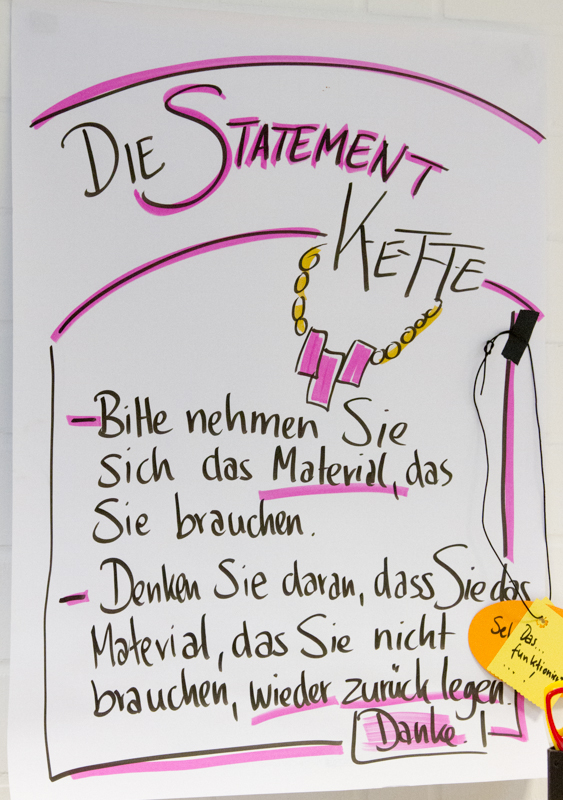 DIE STATEMENT
KETTE
- Bitte nehmen Sie
sich das Material, das
Sie brauchen.
- Denken Sie daran, dass Sie das
Material, das Sie nicht
brauchen, wieder zurück legen.
Danke!
Das...